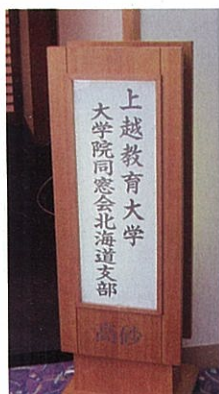 上越教育大学
大学院同窓会北海道支部
高砂